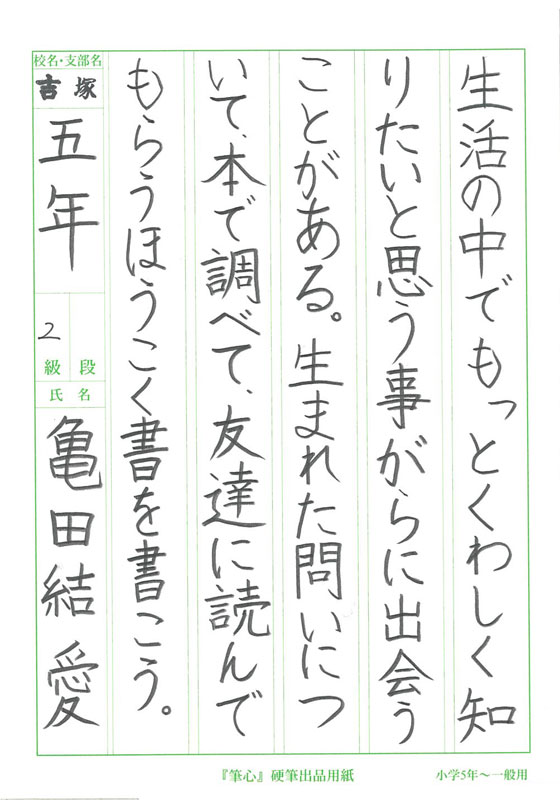 生活の中でもっとくわしく知
りたいと思う事がらに出会う
ことがある。生まれた問いにつ
いて、本で調べて、友達に読んで
もらうほうこく書を書こう。
校名・支部名
吉塚
五年
2
級 段
氏名
亀田結愛
『筆心』硬筆出品用紙
小学5年〜一般用